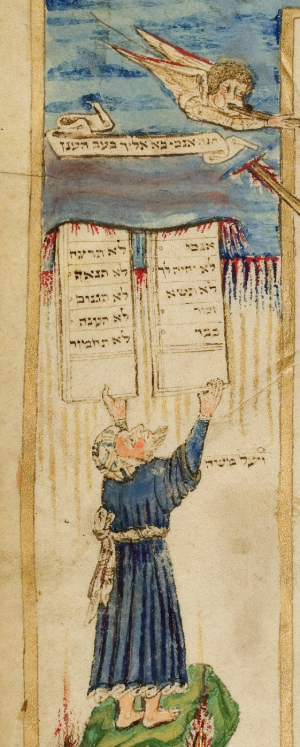 הנה אנכי בא אליך בעב הענן
אנכי
לא יהיה לך
לא תשא
זכור
כבד
לא תרצח
לא תנאף
לא תגנוב
לא תענה
לא תחמוד
ויעל משה